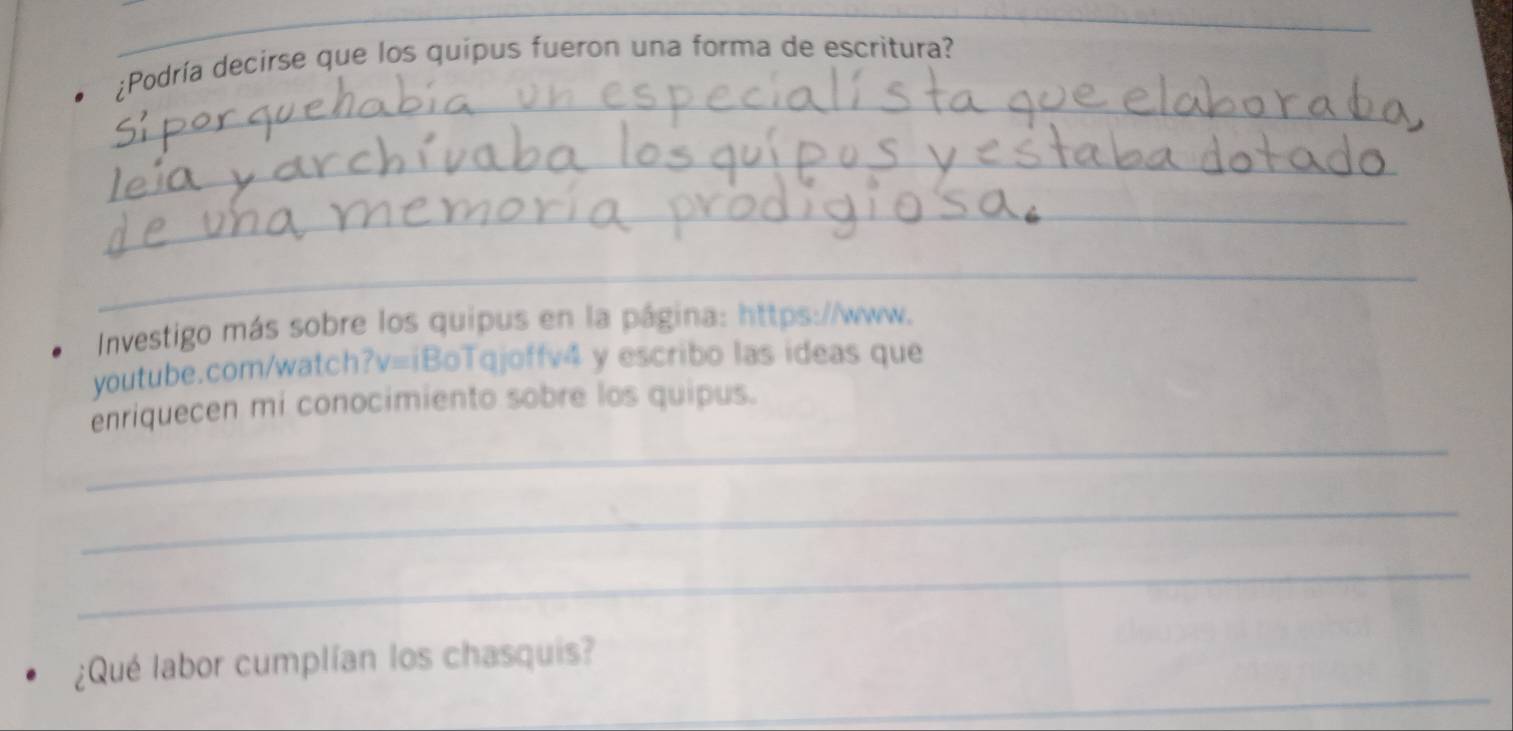 ¿Podría decirse que los quipus fueron una forma de escritura?
si porque habia un especialista que elaboraba,
leía y archivaba los quipus y estaba dotado
de una memoria prodigiosa.
Investigo más sobre los quipus en la página: https://www.
youtube.com/watch?v=iBoTqjoffv4 y escribo las ideas que
enriquecen mi conocimiento sobre los quipus.
¿Qué labor cumplían los chasquis?